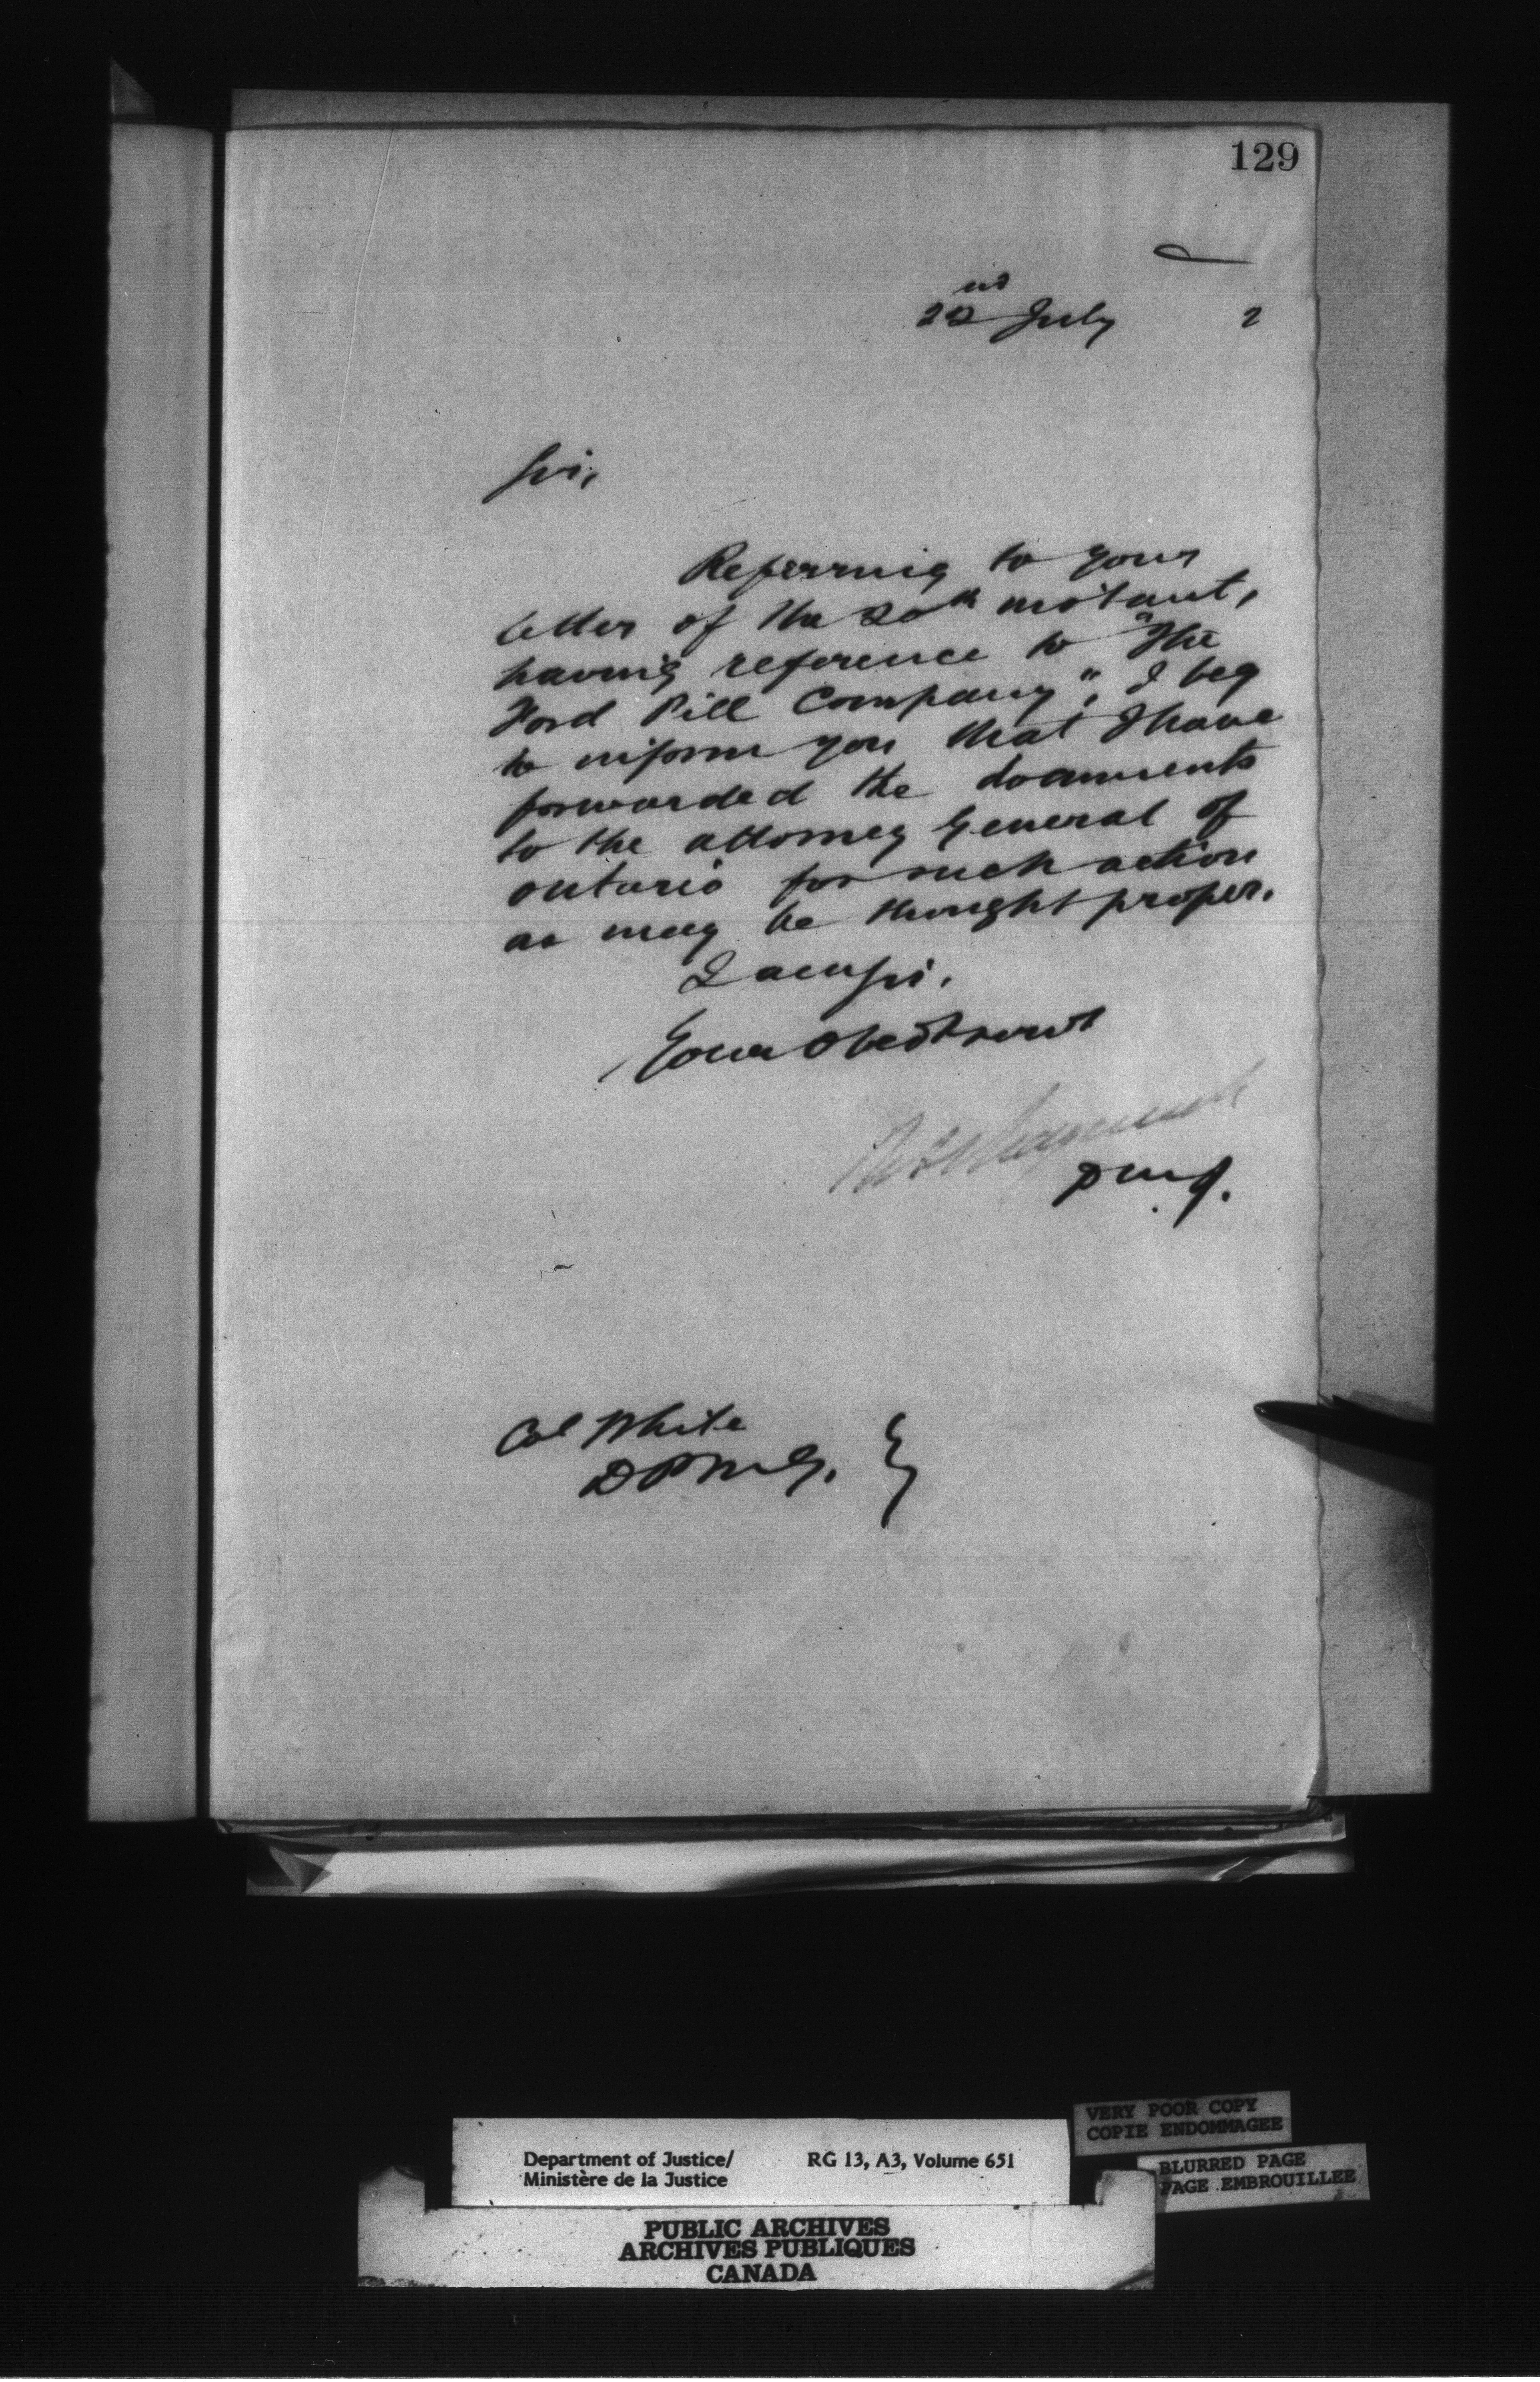 129
22nd July 2
Sir,
Referring to your
letter of the 20th instant,
having reference to "The
Ford Pill Company", I beg
to inform you that I have
forwarded the documents
to the attorney General of
Ontario for such action
as may be thought proper.
I am Sir,
Your Obedt servt
D.M.J.
Col White
D P M G.
Department of Justice/ RG 13, A3, Volume 651
Ministère de la Justice
VERY POOR COPY
COPIE ENDOMMAGEE
BLURRED PAGE
PAGE EMBROUILLEE
PUBLIC ARCHIVES
ARCHIVES PUBLIQUES
CANADA